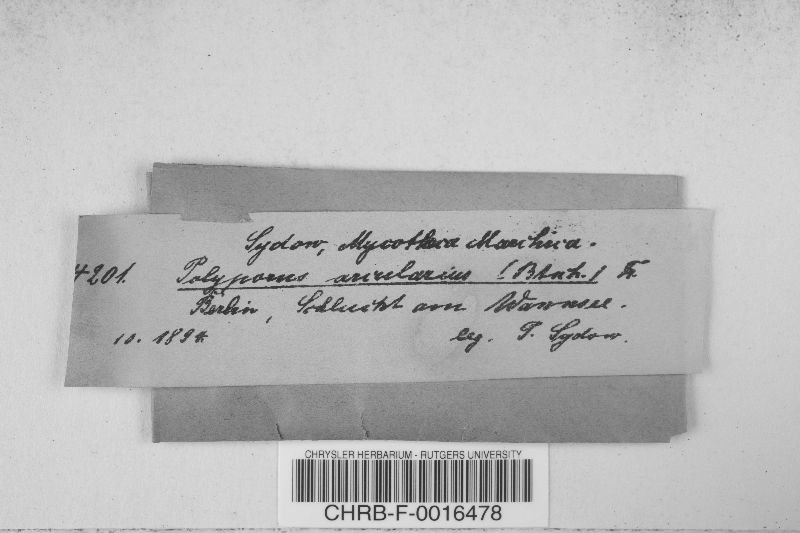 Sydow, Mycotheca Marchica.
4201. Polyporus arcularius (Btsh.) Fr.
Berlin, Schlucht am Wannsee.
10. 1894. leg. P. Sydow.
CHRYSLER HERBARIUM - RUTGERS UNIVERSITY
CHRB-F-0016478